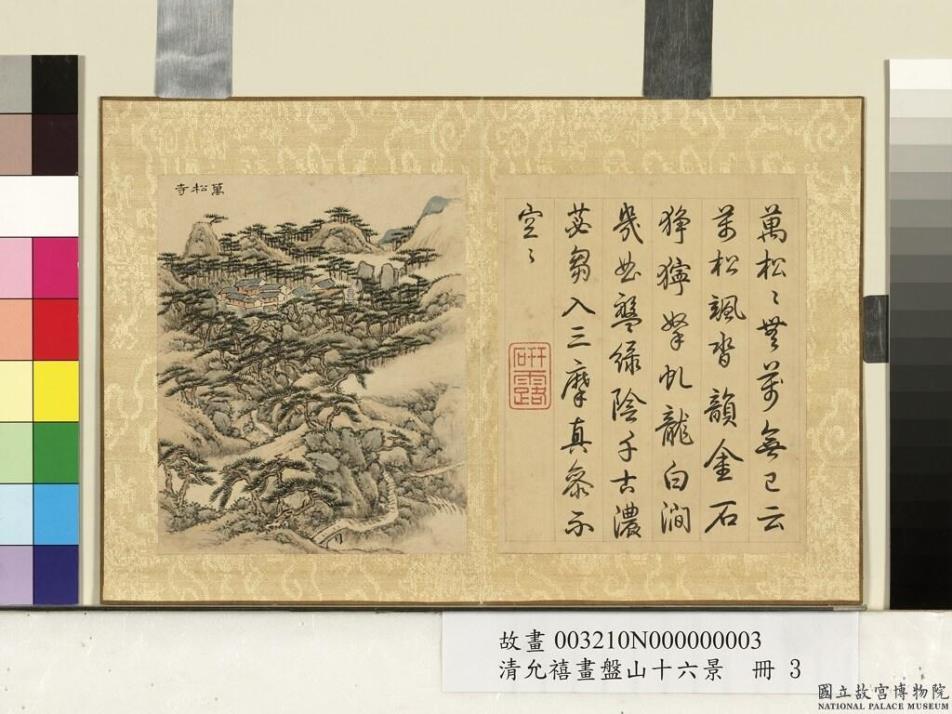 萬松寺
萬松〻無萬無已云
萬松颯沓韻金石
猙獰拏虬龍白澗
幾曲盤綠陰千古濃
苾芻入三摩真參不
空〻
研露
故畫 003210N000000003
清允禧畫盤山十六景 冊 3
國立故宮博物院
NATIONAL PALACE MUSEUM